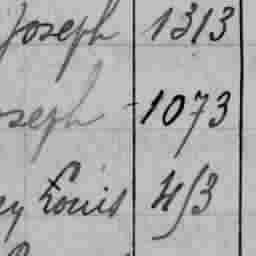 Joseph 1313
oseph 1073
ey Louis 453